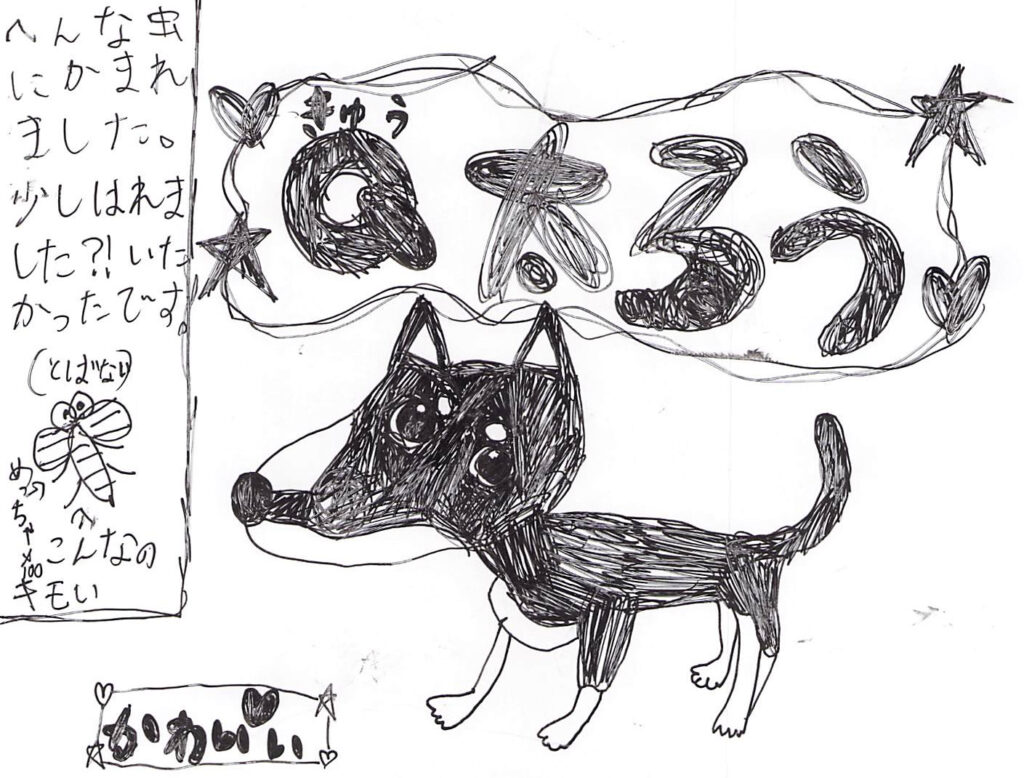 へんな虫
にかまれ
ました。
少しはれま
した?!いた
かったです。
(とばない)
めっちゃ×100
こんなの
キモい
きゅう
Q太ろう
かわいい